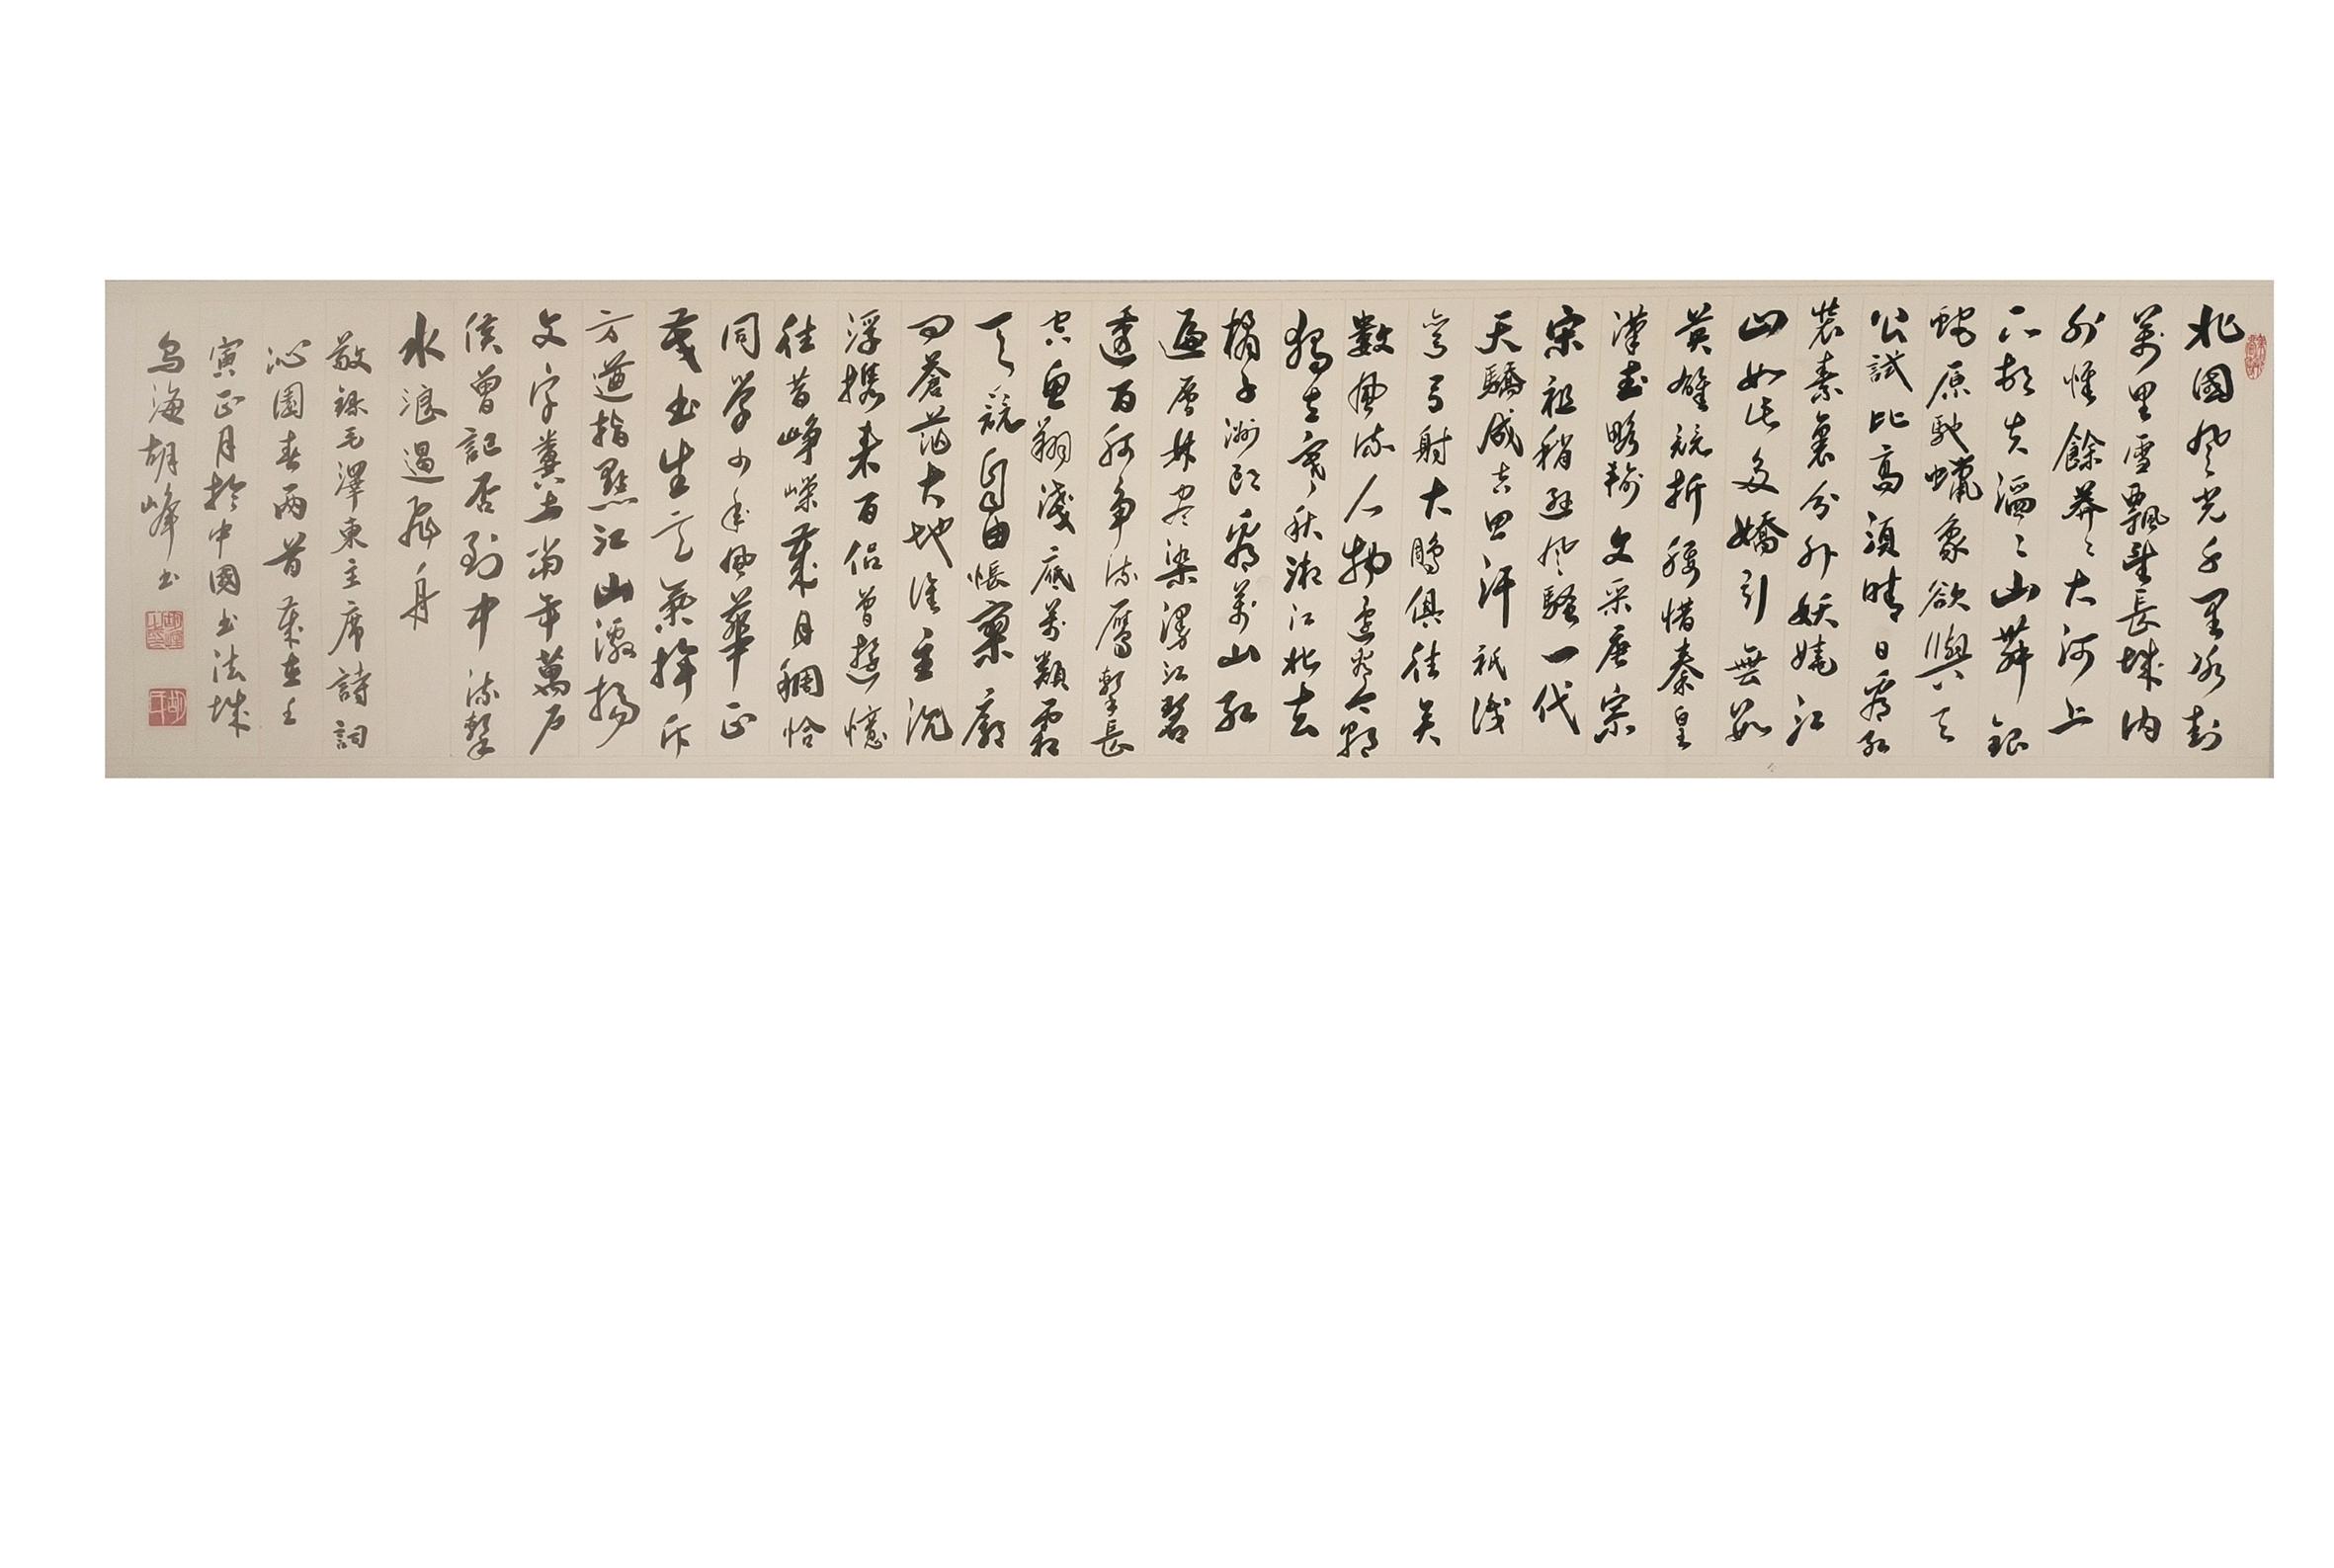 北國風光千里冰封
萬里雪飄望長城內
外惟餘莽々大河上
下頓失滔々山舞銀
蛇原馳蠟象欲與天
公試比高須晴日看紅
裝素裹分外妖嬈江
山如此多嬌引無數
英雄競折腰惜秦皇
漢武略輸文采唐宗
宋祖稍遜風騷一代
天驕成吉思汗祇識
彎弓射大鵰俱往矣
數風流人物還看今朝
獨立寒秋湘江北去
橘子洲頭看萬山紅
遍層林盡染漫江碧
透百舸爭流鷹擊長
空魚翔淺底萬類霜
天競自由悵寥廓
問蒼茫大地誰主沉
浮攜來百侶曾遊憶
往昔崢嶸歲月稠恰
同學少年風華正
茂書生意氣揮斥
方遒指點江山激揚
文字糞土當年萬戶
侯曾記否到中流擊
水浪遏飛舟
敬錄毛澤東主席詩詞
沁園春兩首歲在壬
寅正月於中國書法城
烏海胡峰書